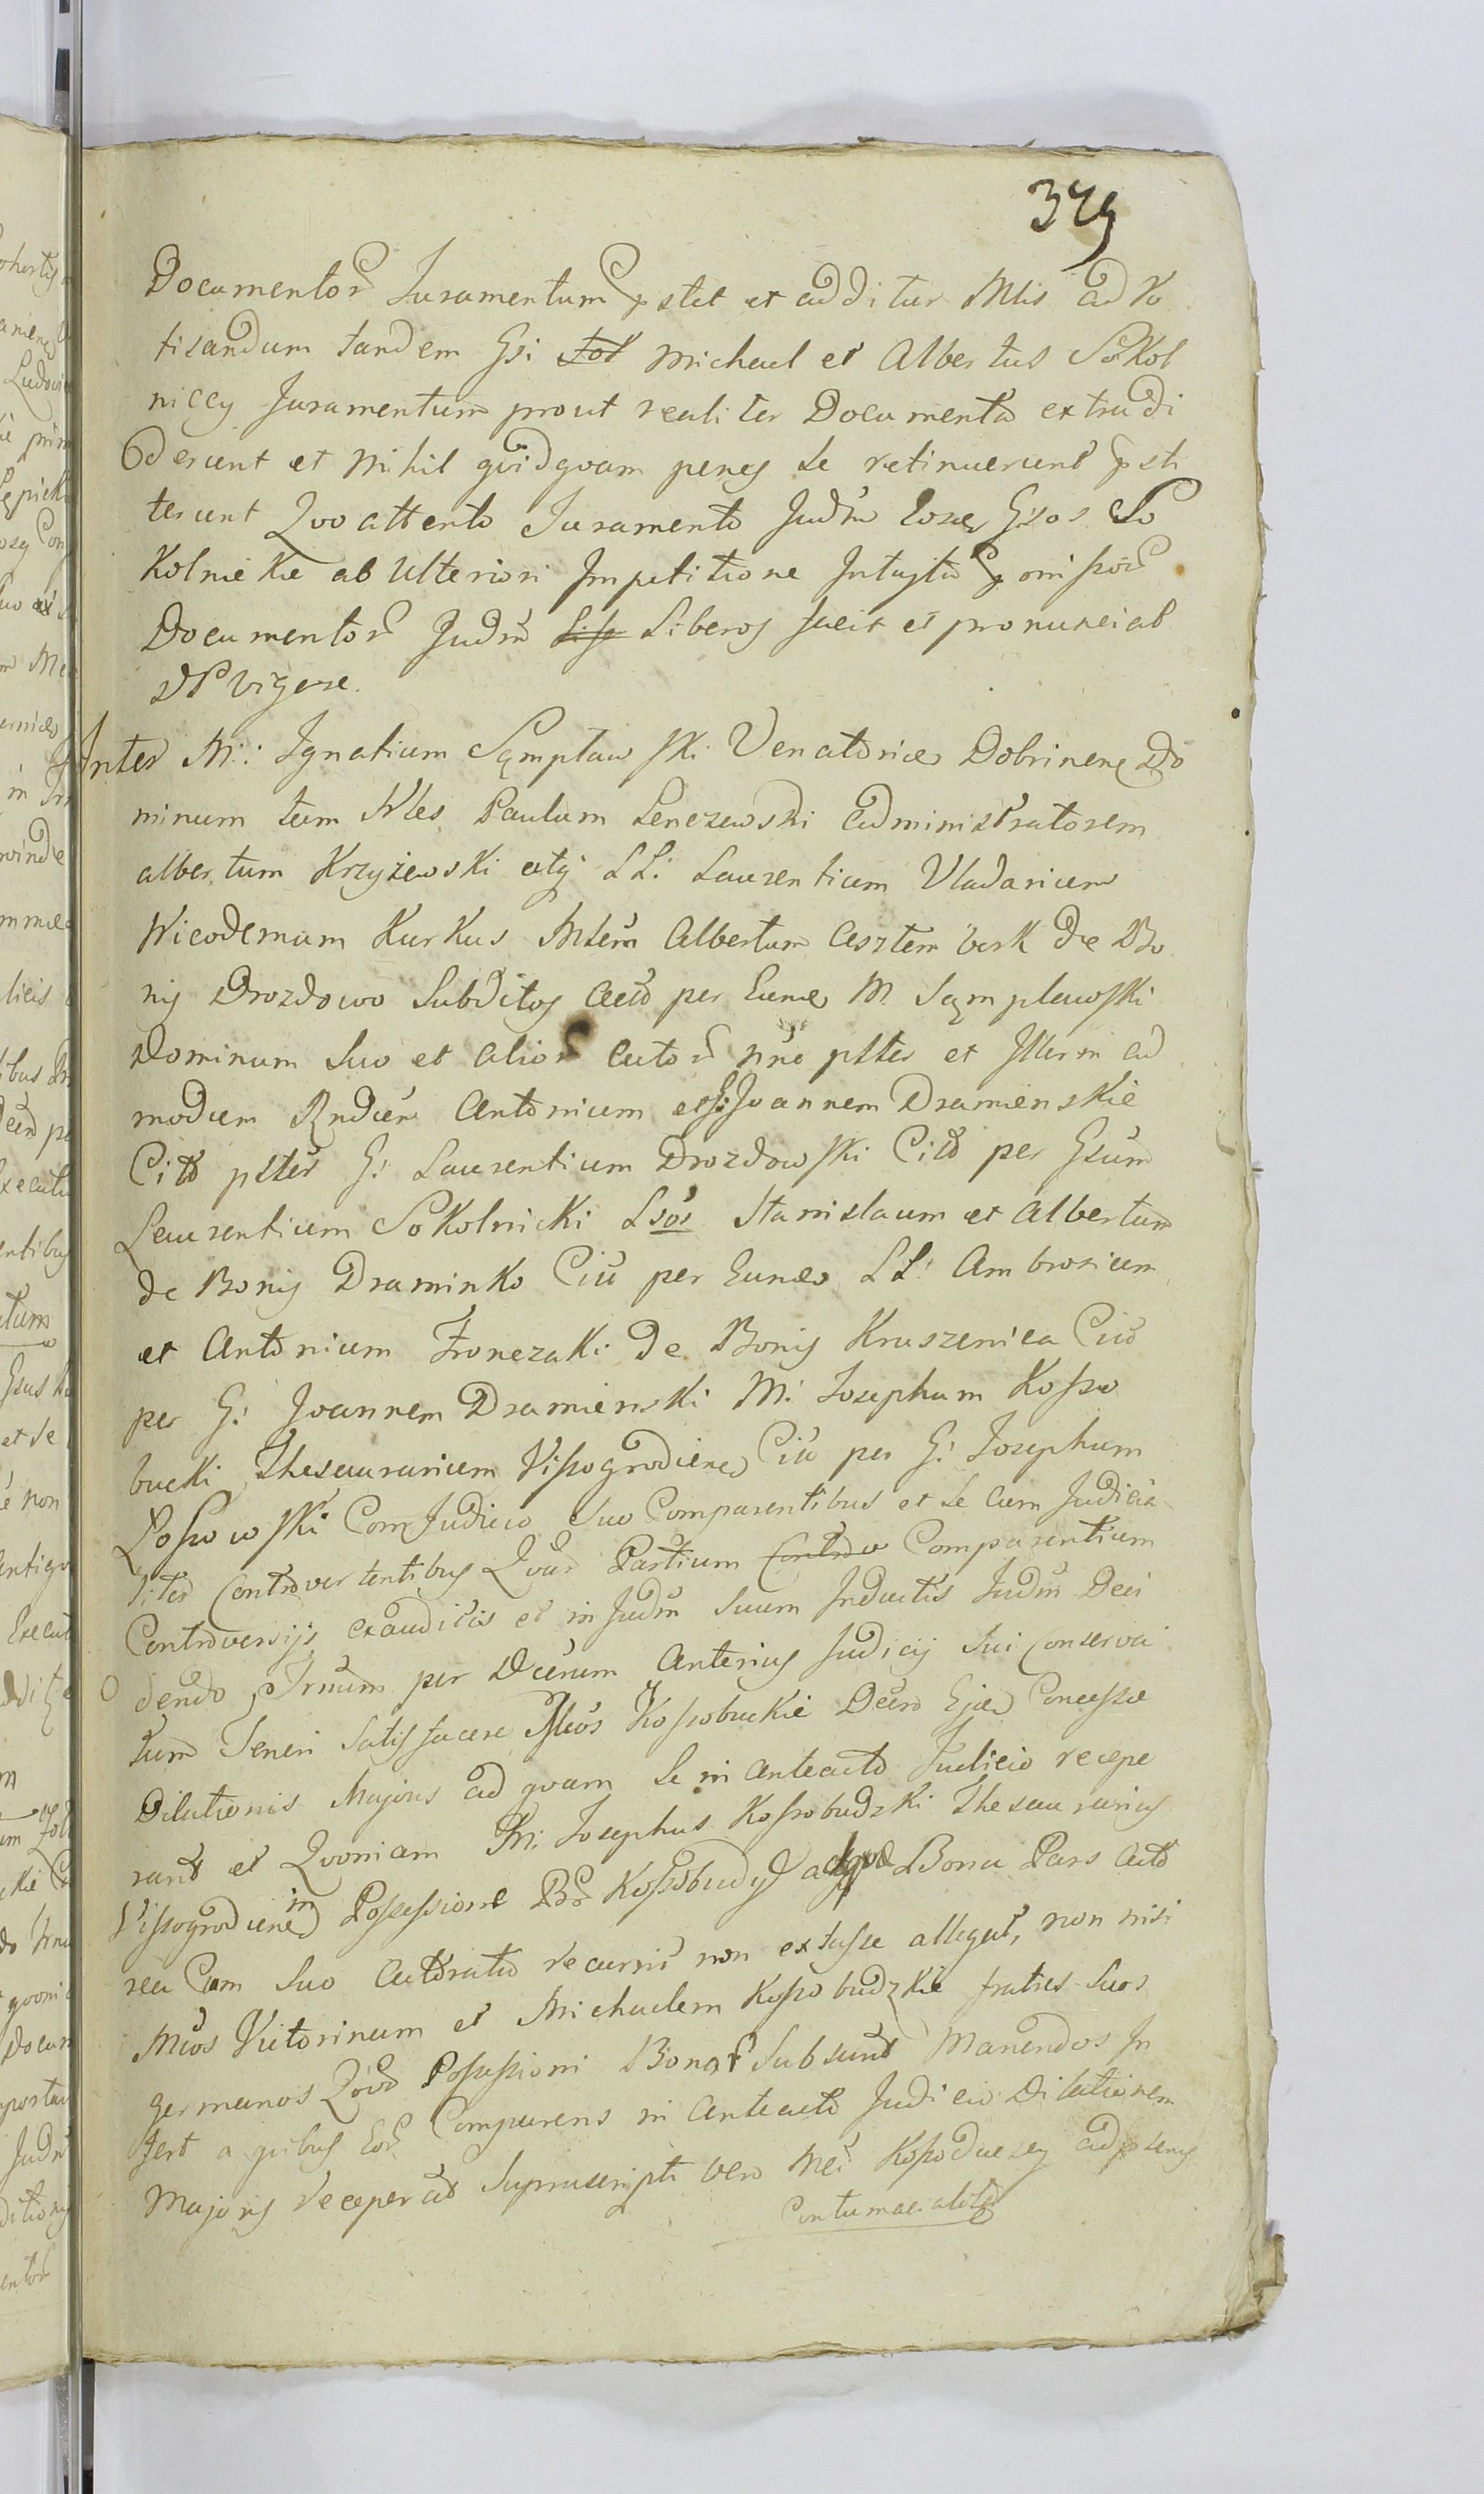 379
Documentor Juramentum pstet et additur Mlis ad Ro
tisandum tandem Gsi Michael et Albertus Sokol
niccy Juramentum prout realiter Documenta extradi
derunt et Nihil quidquam penes se retinuerunt psti
terunt Quo attento Juramento Judm Eosd Gsos So
kolnickie ab Ulteriori Impetitione Intuitu pmissor
Documentor Judm Liberos facit et pronunciat
DP vigore.
Inter M: Ignatium Sąmpławski Venatorice Dobrinens Do
minum tum Nles Paulum Lenczewski administratorem
albertum Krzyżewski atq LL: Laurentium Vladarium
Nicodemum Kurkus Albertum de Bo
nis Drozdowo Subditos Actо per Eund M. Sąmplawski
Dominum Suo et alior Actor nne pltes et Illum ad
modum Rndum Antonium et G: Joannem Dramienskie
Citt pltes G: Laurentium Drozdowski Citt per Gsum
Laurentium Sokolnicki Lsos Stanislaum et Albertum
de Bonis Draminko Citt per Eund LL: Ambrosium
et Antonium Fronczaki de Bonis Kruszenica Citt
per G: Joannem Dramienski M: Josephum Kosso
bucki Thesaurarium Vissogrodiens Citt per G: Josephum
Lossowski Com Judicio Suo Comparentibus et Se Cum Judicia
liter Controvertentibus Quar Partium Comparentium
Controversijs exauditis et in Judm Suum Inductis Judm Deci
dendo, Trnum per Dcrum Anterius Judicij Sui Conserva
tum Teneri Satisfacere Mcos Kossobuckie Dcro Ejusd Concessæ
Dilationis Majoris ad quam Se in anteacto Judicio recepe
runt et Quoniam M: Josephus Kossobudzki Thesaurarius
Vissogrodiens in Possessione Bor Kossobudy ad Bona Pars Acto
rea Cum Suo Actoratu recurrit non extasse allegat, non nisi
Mcos Victorinum et Michaelem Kossobudzkie fratres Suos
germanos Possessioni Bonor Subsunt Manendos In
fert a quibus Eor Comparens in Anteacto Judicio Dilationem
Majoris receperat Suprascripti vero Mci ad psens
Contumacialiter